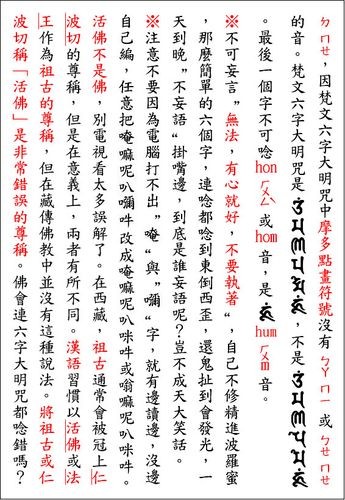 ㄅㄇㄝ，因梵文六字大明咒中摩多點畫符號沒有ㄅㄚㄇㄧ或ㄅㄝㄇㄝ
的音。梵文六字大明咒是，不是
。最後一個字不可唸hon ㄏㄨㄥ或hom音，是hum ㄏㄨㄇ音。
※不可妄言”無法，有心就好，不要執著“，自己不修精進波羅蜜
，那麼簡單的六個字，連唸都唸到東倒西歪，還鬼扯到會發光，一
天到晚”不妄語“掛嘴邊，到底是誰妄語呢？豈不成天大笑話。
※注意不要因為電腦打不出”唵“與”“字，就有邊讀邊，沒邊
自己編，任意把唵嘛呢叭吽改成唵嘛呢叭咪吽或嗡嘛呢叭咪吽。
活佛不是佛，別電視看太多誤解了。在西藏，祖古通常會被冠上仁
波切的尊稱，但是在意義上，兩者有所不同。漢語習慣以活佛或法
王作為祖古的尊稱，但在藏傳佛教中並沒有這種說法。將祖古或仁
波切稱「活佛」是非常錯誤的尊稱。佛會連六字大明咒都唸錯嗎？